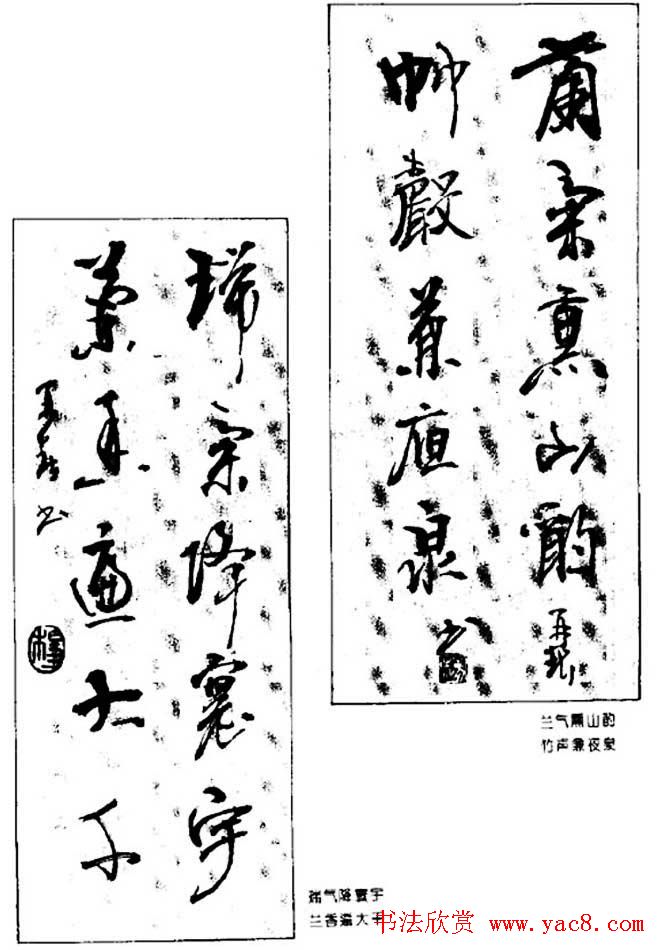 蘭氣熏山酌
竹聲兼夜泉
書
兰气熏山酌
竹声兼夜泉
瑞氣降寰宇
蘭香遍大千
書
瑞气降寰宇
兰香遍大千
书法欣赏 www.yac8.com